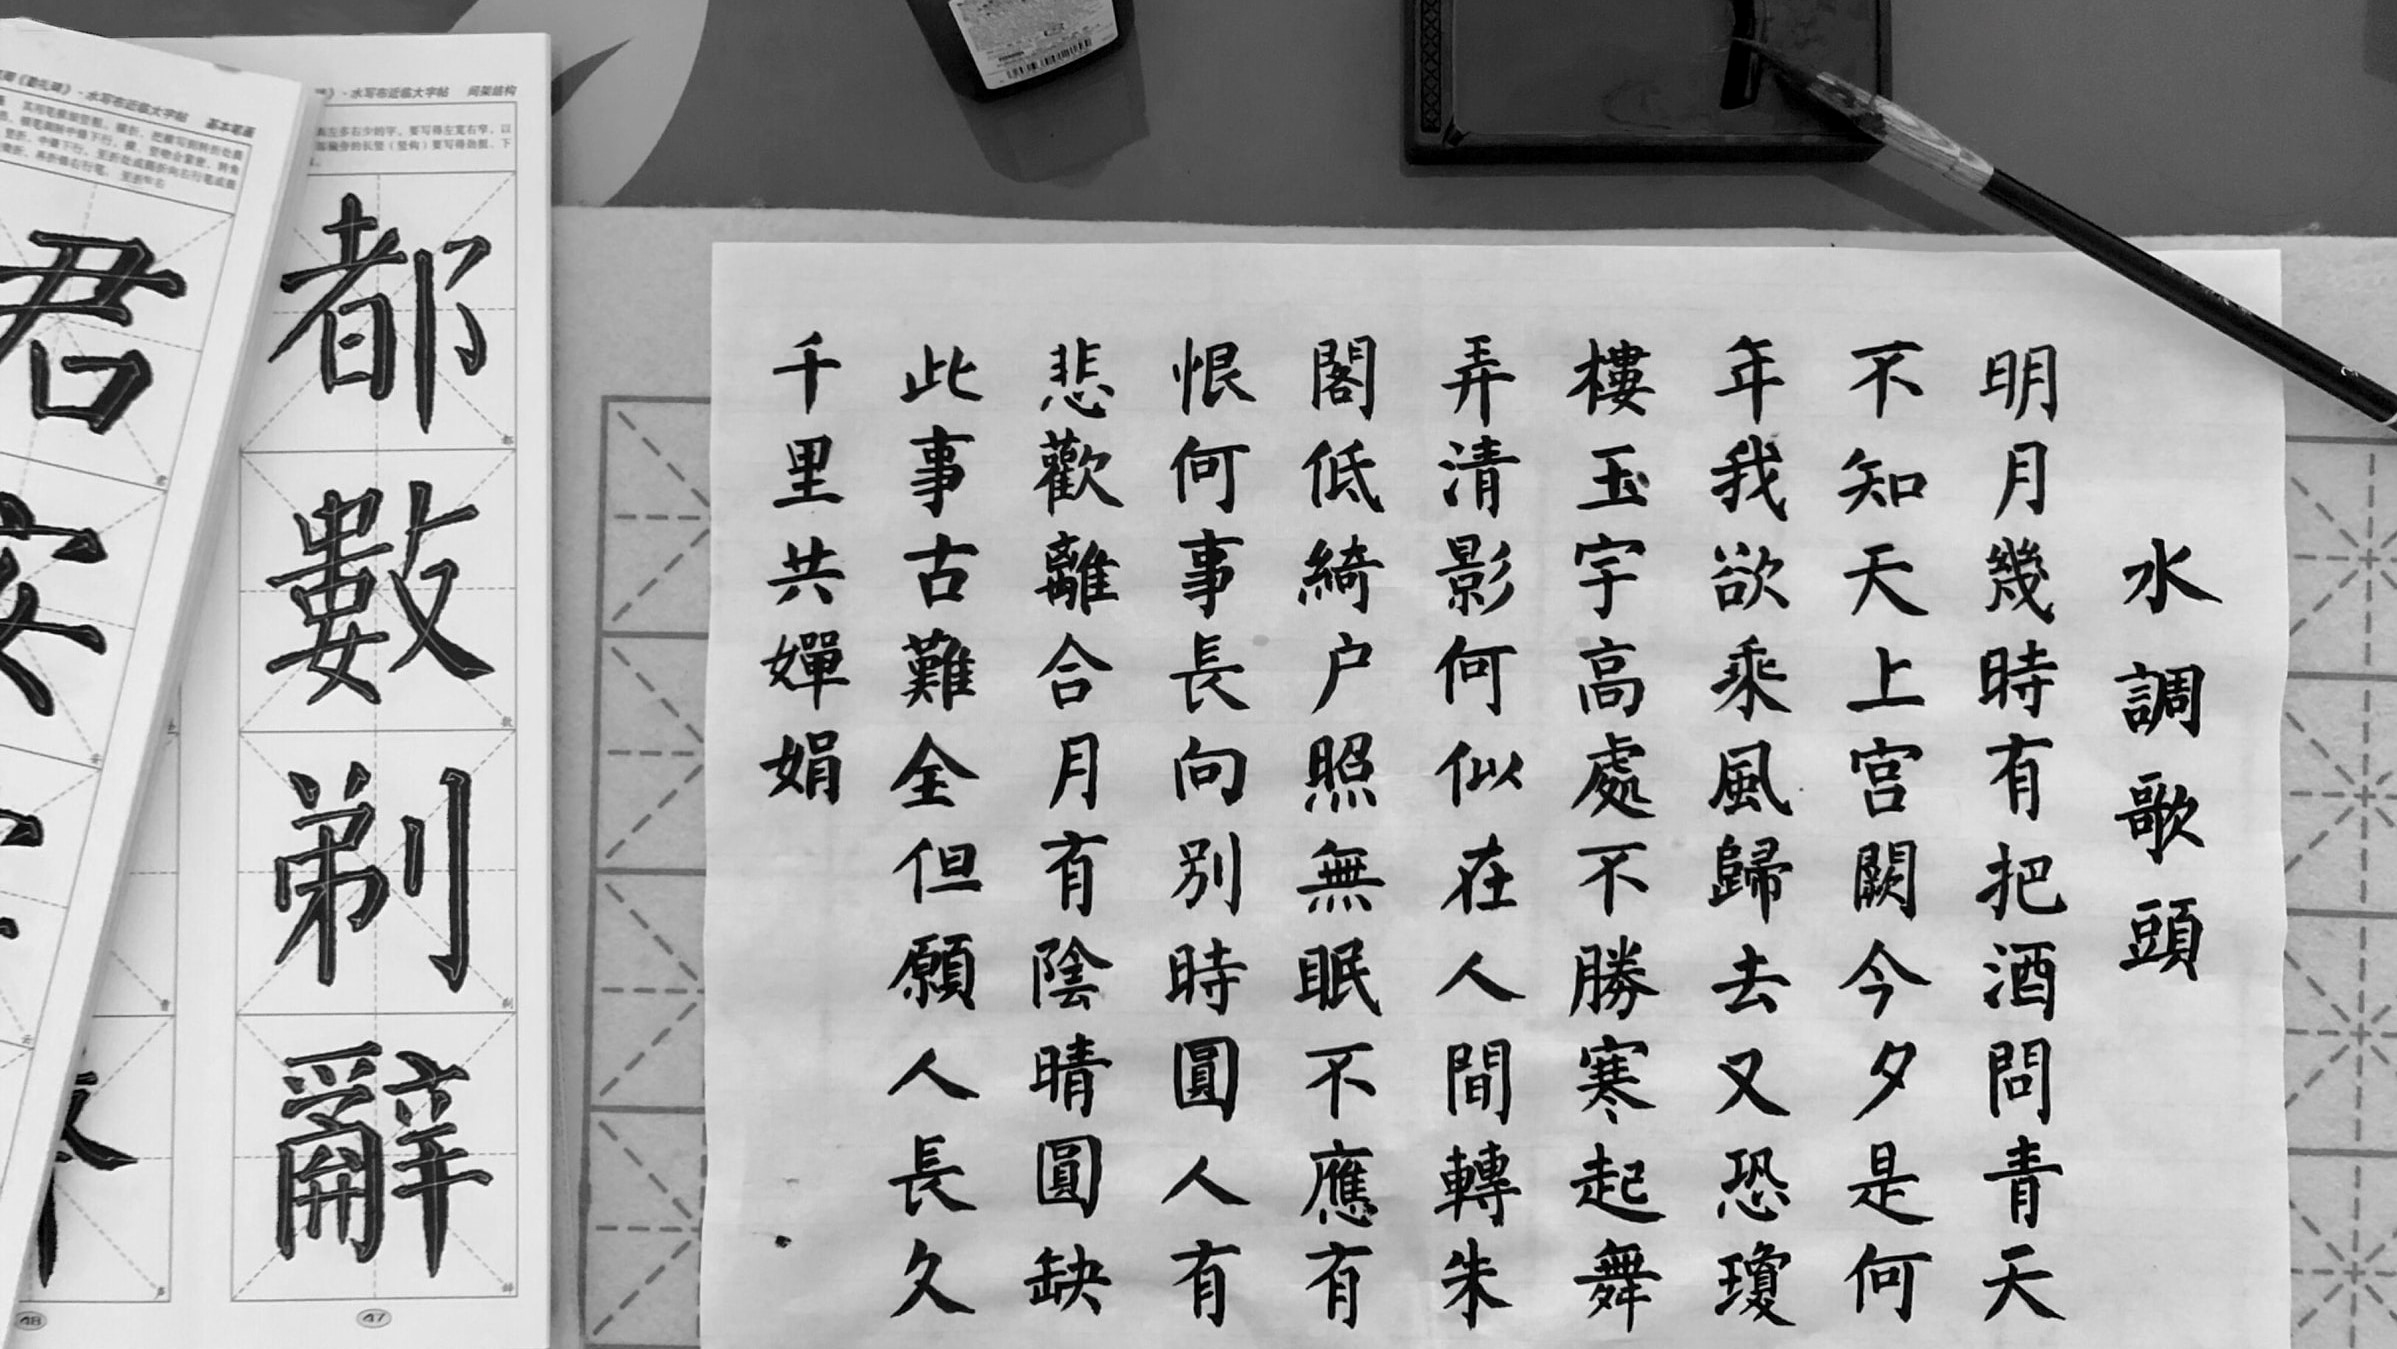 水調歌頭
明月幾時有把酒問青天
不知天上宮闕今夕是何
年我欲乘風歸去又恐瓊
樓玉宇高處不勝寒起舞
弄清影何似在人間轉朱
閣低綺户照無眠不應有
恨何事長向別時圓人有
悲歡離合月有陰晴圓缺
此事古難全但願人長久
千里共嬋娟
水写布近临大字帖 间架结构
都
數
剃
辭
47
水写布近临大字帖 基本笔画
君
安
48